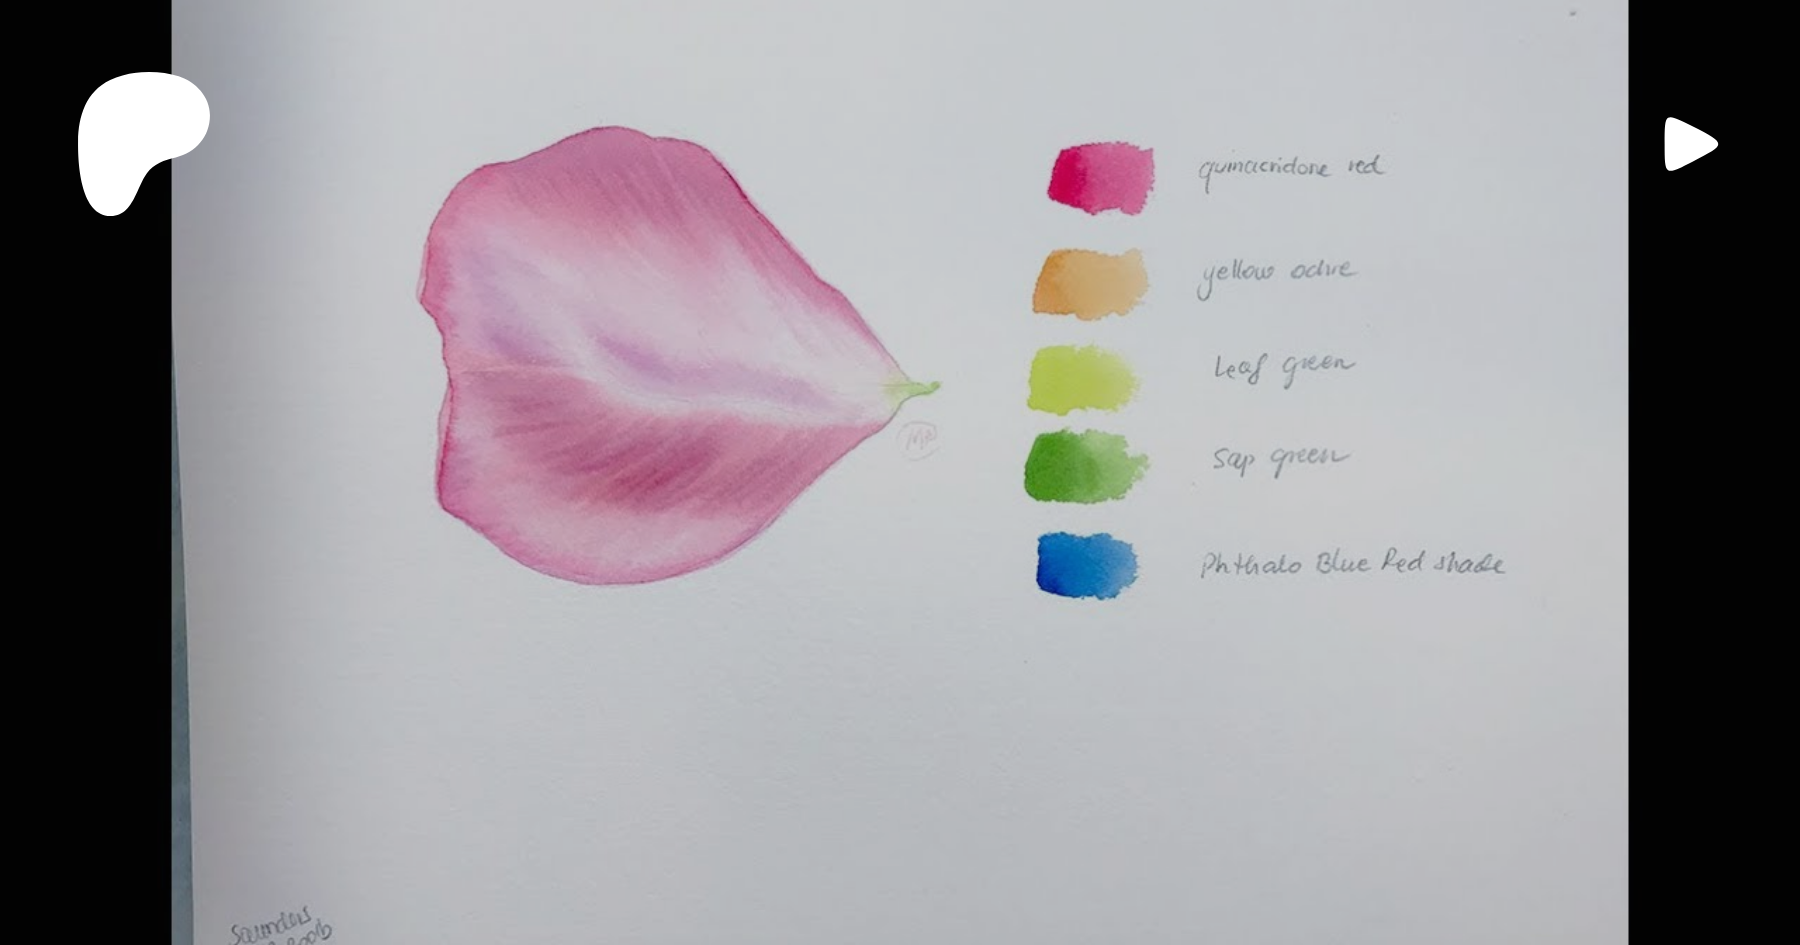 quinacridone red
yellow ochre
Leaf green
Sap green
Phthalo Blue Red shade
Saunders